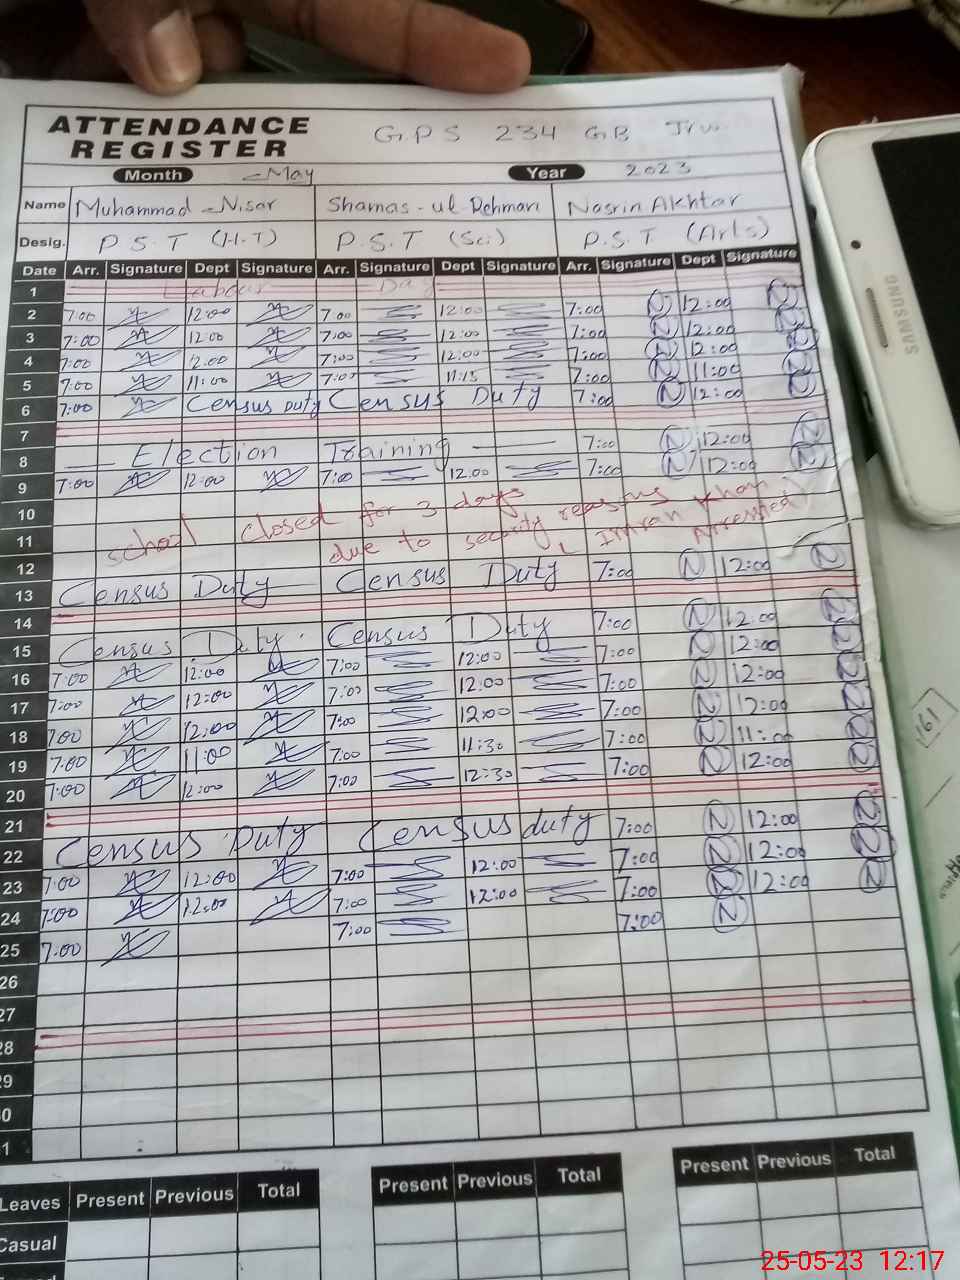 ATTENDANCE REGISTER GPS 234 GB
Month May Year 2023
Name Muhammad Nisar Shamas-ul-Rehman Nasrin Akhtar
Desig. P.S.T (H.T) P.S.T (Sci) P.S.T (Arts)
Date Arr. Signature Dept Signature Arr. Signature Dept Signature Arr. Signature Dept Signature
1 Labour Day
2 7:00 12:00 7:00 12:00 7:00 12:00
3 7:00 12:00 7:00 12:00 7:00 12:00
4 7:00 12:00 7:00 12:00 7:00 12:00
5 7:00 11:00 7:00 11:15 7:00 11:00
6 7:00 Census Duty Census Duty 7:00 12:00
7
8 Election Training 7:00 12:00
9 7:00 12:00 7:00 12:00 7:00 12:00
10 school closed for 3 days
11 due to security reasons Imran Khan Arrested
12
13 Census Duty Census Duty 7:00 12:00
14
15 Census Duty Census Duty 7:00 12:00
16 7:00 12:00 7:00 12:00 7:00 12:00
17 7:00 12:00 7:00 12:00 7:00 12:00
18 7:00 12:00 7:00 12:00 7:00 12:00
19 7:00 11:00 7:00 11:30 7:00 11:00
20 7:00 12:00 7:00 12:30 7:00 12:00
21
22 Census Duty Census duty 7:00 12:00
23 7:00 12:00 7:00 12:00 7:00 12:00
24 7:00 12:00 7:00 12:00 7:00 12:00
25 7:00 7:00 7:00
26
27
28
29
Leaves Present Previous Total Present Previous Total Present Previous Total
Casual
SAMSUNG
161
25-05-23 12:17